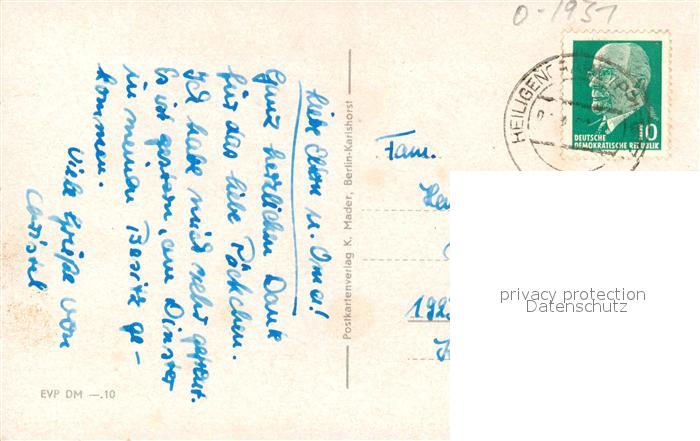 Liebe Eltern u. Oma!
Ganz herzlichen Dank
für das liebe Päckchen.
Ich habe mich sehr gefreut.
Es ist gestern, am Dinstag
in meinen Besitz ge-
kommen.
Viele Grüße von
Christel
EVP DM —.10
Postkartenverlag K. Mader, Berlin-Karlshorst
0-1931
HEILIGEN
10
DEUTSCHE
DEMOKRATISCHE REPUBLIK
Fam.
192
privacy protection
Datenschutz